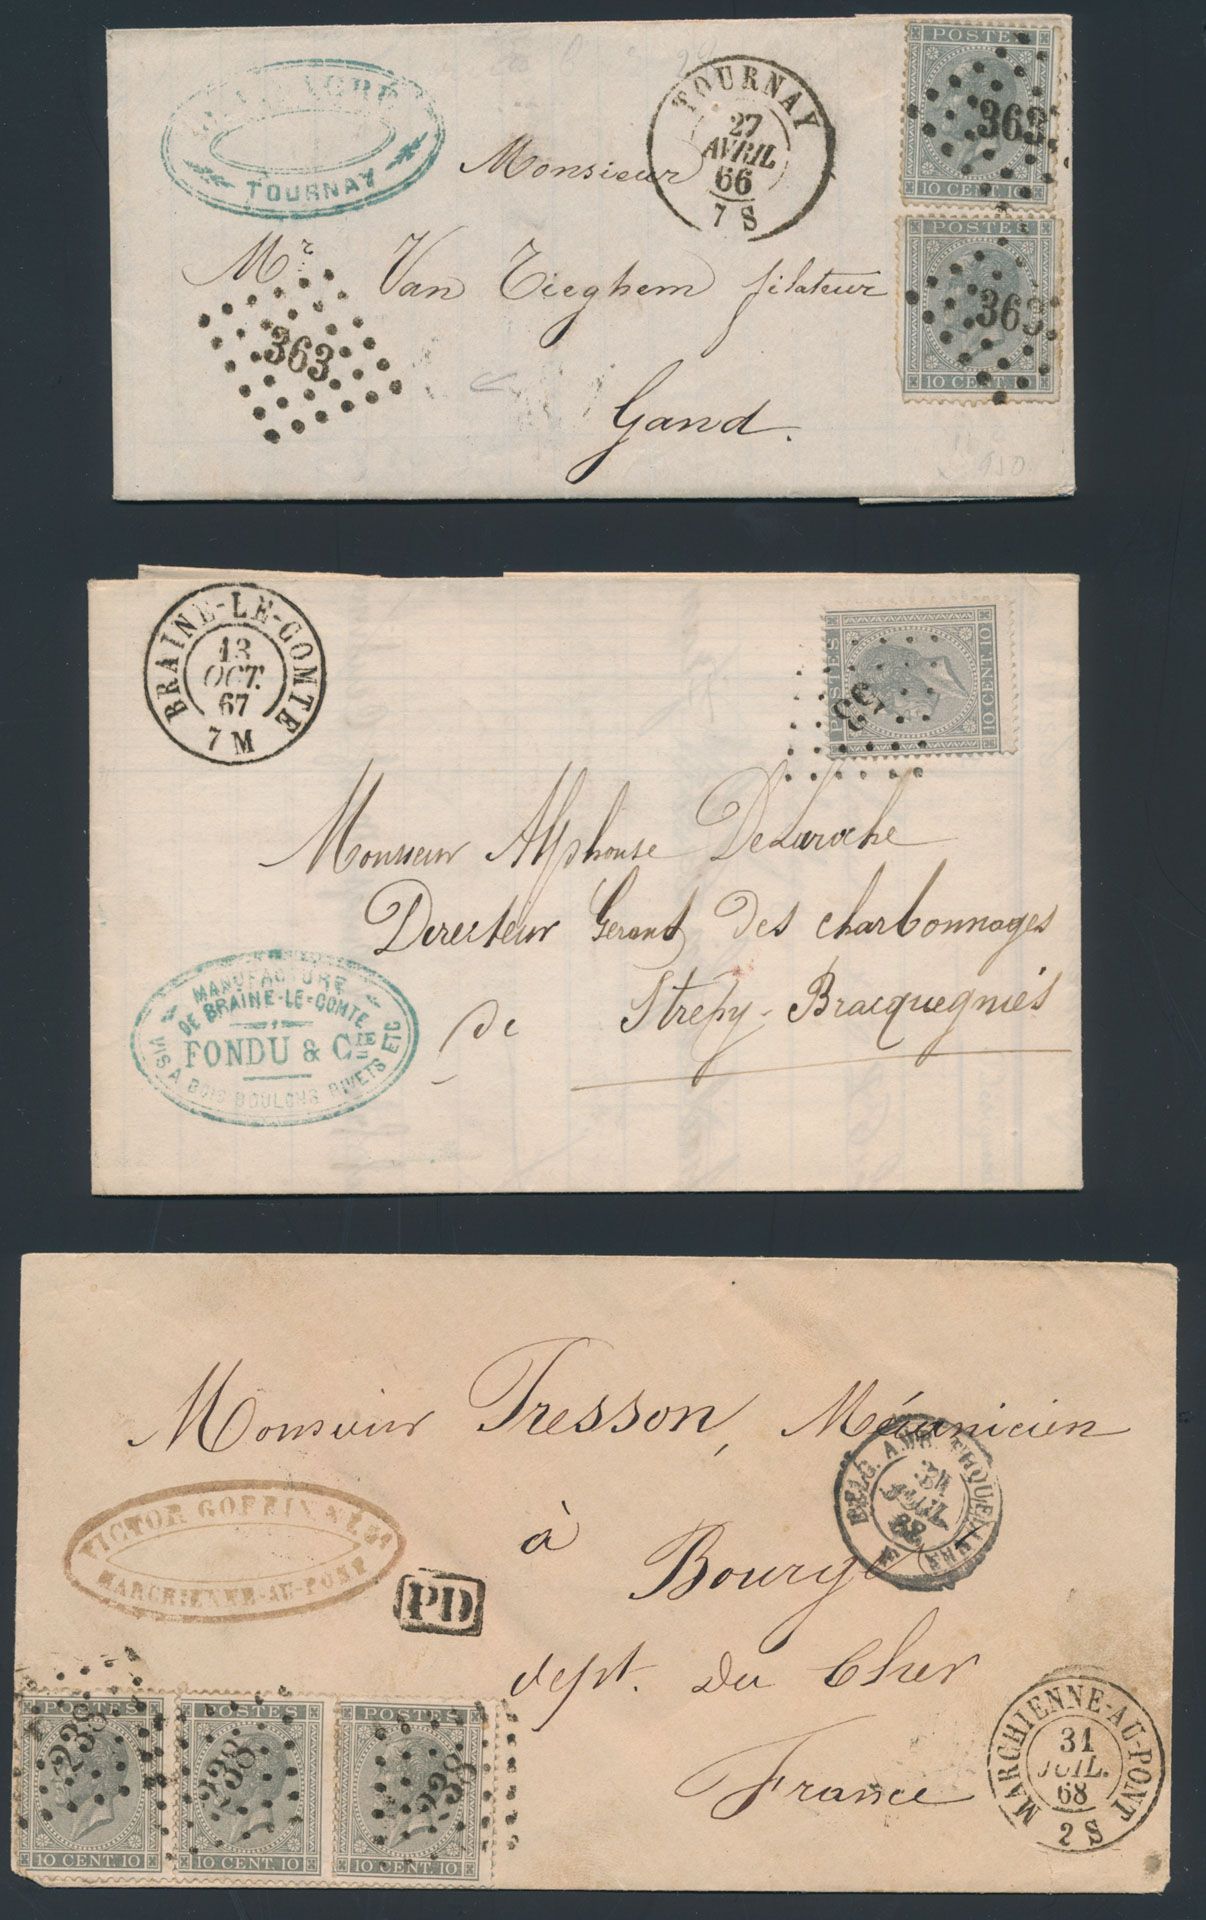 TOURNAY
TOURNAY
27
AVRIL
66
7 S
Monsieur
Mr Van Tieghem filateur
Gand.
363
POSTES
363
10 CENT. 10
POSTES
363
10 CENT. 10
BRAINE-LE-COMTE
13
OCT.
67
7 M
POSTES
10 CENT. 10
Monsieur Alphonse Delaroche
Directeur Gerant des charbonnages
de Strepy-Bracquegnies
MANUFACTURE
DE BRAINE-LE-COMTE
FONDU & CIE
VIS A BOIS BOULONS RIVETS ETC
Monsieur Tresson, Mécanicien
à
Bourges
dept. du Cher
France
VICTOR GOFFIN
MARCHIENNE-AU-PONT
PD
BELG. A
31
JUIL.
68
MARCHIENNE-AU-PONT
31
JUIL.
68
2 S
POSTES
238
10 CENT. 10
POSTES
238
10 CENT. 10
POSTES
238
10 CENT. 10